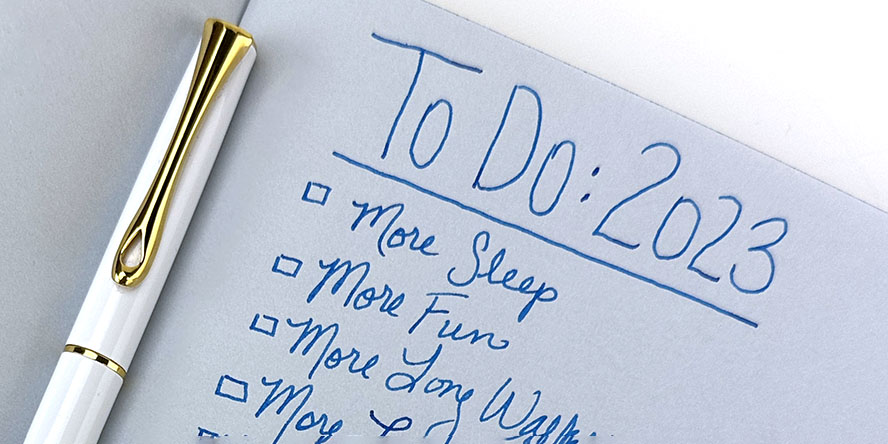 To Do: 2023
More Sleep
More Fun
More Long
More